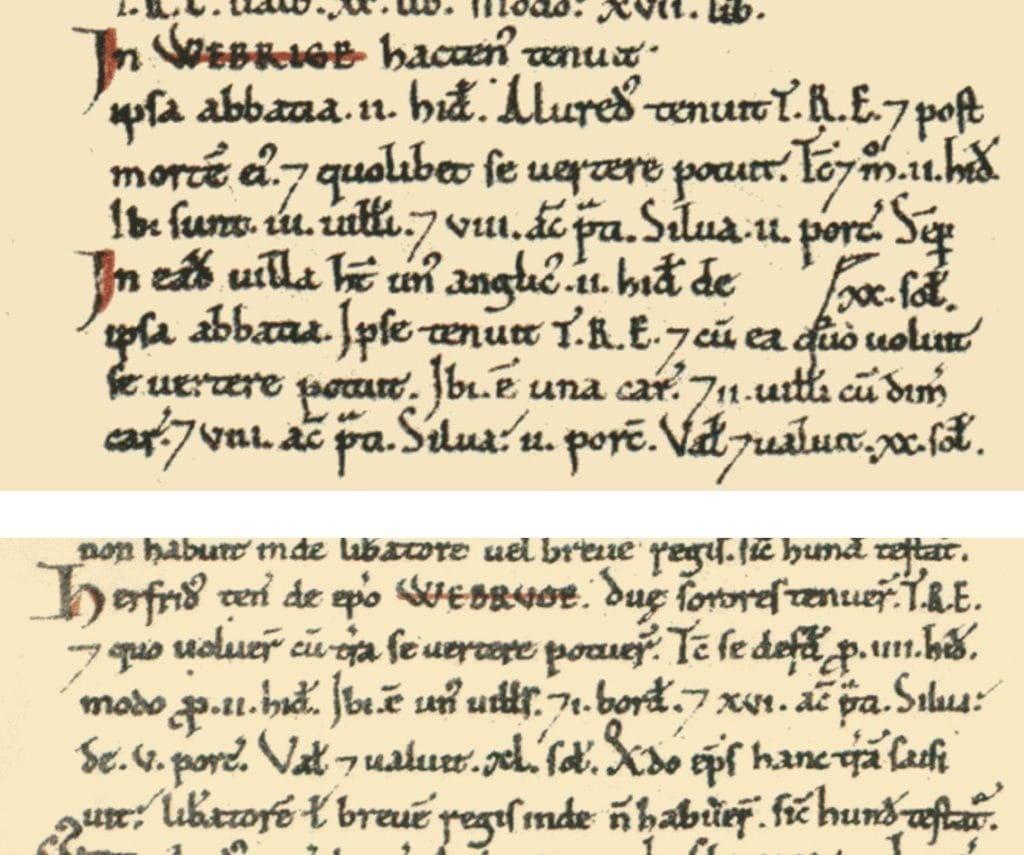 T.R.E. ualb. xx. lib. modo: XVII. lib.
In WEBRIGE hacten⁹ tenuit
ipsa abbatia .ii. hiđ. Aluređ tenuit T.R.E. ⁊ post
mortē ei⁹. ⁊ quolibet se uertere potuit. Tc̄ ⁊ m̊ .ii. hiđ.
Ibi sunt .iii. uilłi. ⁊ VIII. ac̄ p̃ti. Silua .ii. porc̉. Sēp
In eađ uilla ht̄ un⁹ anglic⁹ .ii. hiđ de xx. soł.
ipsa abbatia. Ipse tenuit T.R.E. ⁊ cū ea quò uoluit
se uertere potuit. Ibi. ē una car̉. ⁊ ii. uilłi cū dim̉
car̉. ⁊ VIII. ac̄ p̃ti. Silua: ii. porc̄. Vał ⁊ ualuit. xx. soł.
non habuit inde libatore uel breue regis. sic̄ hund testat̉.
Herfriđ ten̉ de ep̉o WEBRUGE. Duę sorores tenuer̄. T.R.E.
⁊ quo uoluer̄ cū t̉ra se uertere potuer̄. Tc̄ se defđ ꝓ .iiii. hiđ.
modo ꝓ .ii. hiđ. Ibi. ē un⁹ uilłs. ⁊ i. borđ. ⁊ XVI. ac̄ p̃ti. Silua:
de. v. porc̉. Vał ⁊ ualuit. xl. soł. Qđo ep̄s hanc t̉rā saisi
uit: lib̉atorē ł breuē regis inde n̄ habuer̄. sic̄ hunđ testat̉.